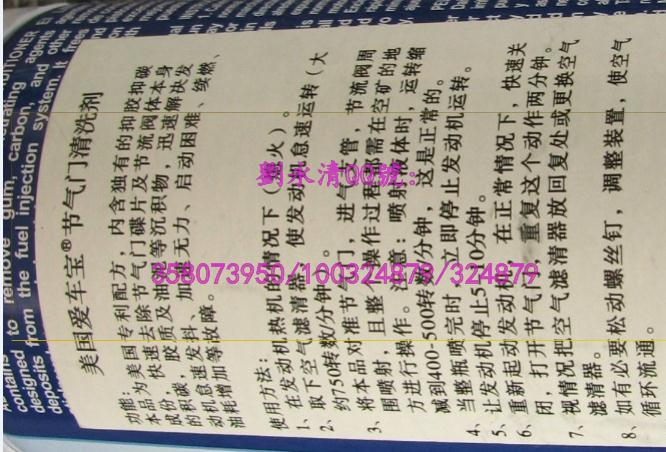 CONDITIONER
contains to remove gum, carbon, and other
designed from the fuel injection system. It
deposits
美国爱车宝®节气门清洗剂
功能：
本品为美国专利配方，内含独有的抑胶抑碳
成份，快速去除节气门碟片及节流阀体本身
的积碳，胶质及油泥等沉积物，迅速解决发
动机怠速、发抖、加速无力、启动困难、续燃、
油耗增加等故障。
使用方法：
1、在发动机热机
情况下（熄火）。
2、取下空气滤清器，使发动机怠速运转（大
约750转数/分钟）。
3、将本品对准节气门，进气支管，节流阀周
围喷射，且整个操作过程都需在空矿的地
方进行操作。注意：喷射液体时，运转缩
减到400-500转数/分钟，这是正常的。
4、当整瓶喷完时，立即停止发动机运转。
5、让发动机停止5-10分钟。
6、重新起动发动机，在正常情况下，快速关
闭，打开节气门，重复这个动作两分钟。
7、视情况把空气滤清器放回复处或更换空气
滤清器。
8、如有必要松动螺丝钉，调整装置，使空气
循环流通。
劉永清QQ號：
658073950/100324879/324879